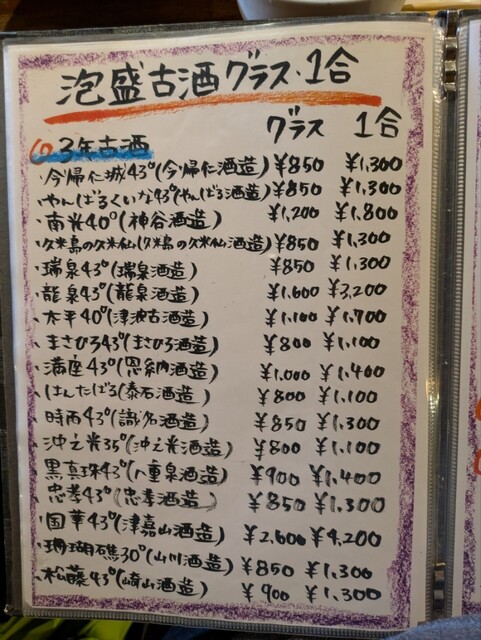 泡盛古酒グラス・1合
グラス 1合
3年古酒
・今帰仁城43°(今帰仁酒造) ¥850 ¥1,300
・やんばるくいな43°(やんばる酒造) ¥850 ¥1,300
・南光40°(神谷酒造) ¥1,200 ¥1,800
・久米島の久米仙(久米島の久米仙酒造) ¥850 ¥1,300
・瑞泉43°(瑞泉酒造) ¥850 ¥1,300
・龍泉43°(龍泉酒造) ¥1,600 ¥3,200
・太平40°(津波古酒造) ¥1,100 ¥1,700
・まさひろ43°(まさひろ酒造) ¥800 ¥1,100
・満座43°(恩納酒造) ¥1,000 ¥1,400
・はんたばる(泰石酒造) ¥800 ¥1,100
・時雨43°(識名酒造) ¥850 ¥1,300
・沖之光35°(沖之光酒造) ¥800 ¥1,100
・黒真珠43°(八重泉酒造) ¥900 ¥1,400
・忠孝43°(忠孝酒造) ¥850 ¥1,300
・国華43°(津嘉山酒造) ¥2,600 ¥4,200
・珊瑚礁30°(山川酒造) ¥850 ¥1,300
・松藤43°(崎山酒造) ¥900 ¥1,300